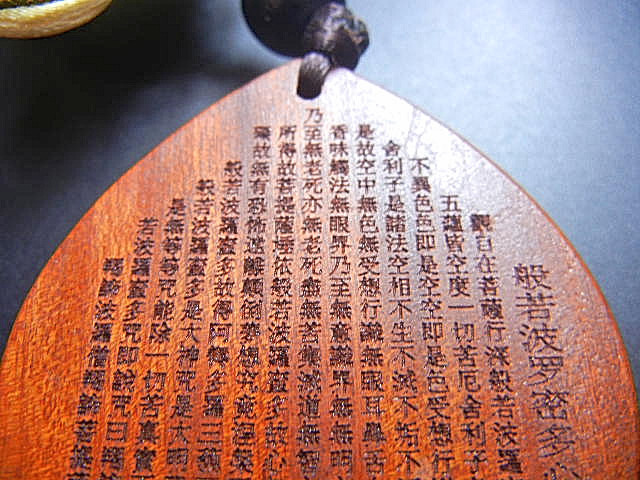 般若波罗密多心
觀自在菩薩行深般若波羅
五蘊皆空度一切苦厄舍利子
不異色色即是空空即是色受想行
舍利子是諸法空相不生不滅不垢不
是故空中無色無受想行識無眼耳鼻舌
香味觸法無眼界乃至無意識界無無明
乃至無老死亦無老死盡無苦集滅道無智
所得故菩提薩埵依般若波羅蜜多故心
礙故無有恐怖遠離顛倒夢想究竟涅槃
般若波羅蜜多故得阿耨多羅三藐
般若波羅蜜多是大神咒是大明
是無等等咒能除一切苦真實
若波羅蜜多咒即說咒曰揭
揭諦波羅僧揭諦菩提薩